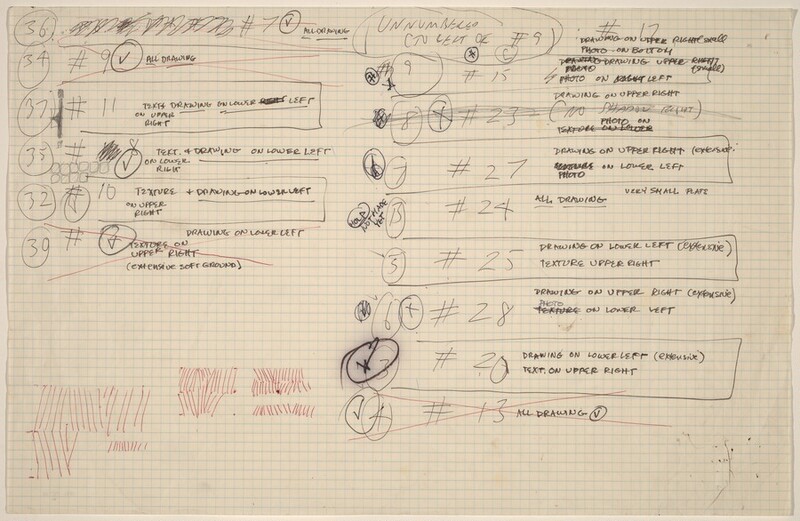 36 # 7 ALL DRAWING
34 # 9 ALL DRAWING
37 # 11 TEXT & DRAWING ON LOWER LEFT
ON UPPER
RIGHT
35 # 8 TEXT. & DRAWING ON LOWER LEFT
ON LOWER
RIGHT
32 # 10 TEXTURE & DRAWING ON LOWER LEFT
ON UPPER
RIGHT
39 # DRAWING ON LOWER LEFT
TEXTURE ON
UPPER RIGHT
(EXTENSIVE SOFT GROUND)
UNNUMBERED
TO LEFT OF # 9
# 17 DRAWING ON UPPER RIGHT small
PHOTO ON BOTTOM
9 # 15 DRAWING UPPER RIGHT
(small)
PHOTO ON LEFT
DRAWING ON UPPER RIGHT
8 # 23
PHOTO ON
TEXTURE ON LOWER
7 # 27 DRAWING ON UPPER RIGHT (EXTENSIVE
TEXTURE ON LOWER LEFT
PHOTO
VERY SMALL PLATE
HOLD
NOT MADE
YET
# 24 ALL DRAWING
5 # 25 DRAWING ON LOWER LEFT (EXTENSIVE)
TEXTURE UPPER RIGHT
6 # 28 DRAWING ON UPPER RIGHT (EXTENSIVE)
PHOTO
TEXTURE ON LOWER LEFT
# 20 DRAWING ON LOWER LEFT (EXTENSIVE)
TEXT. ON UPPER RIGHT
# 13 ALL DRAWING